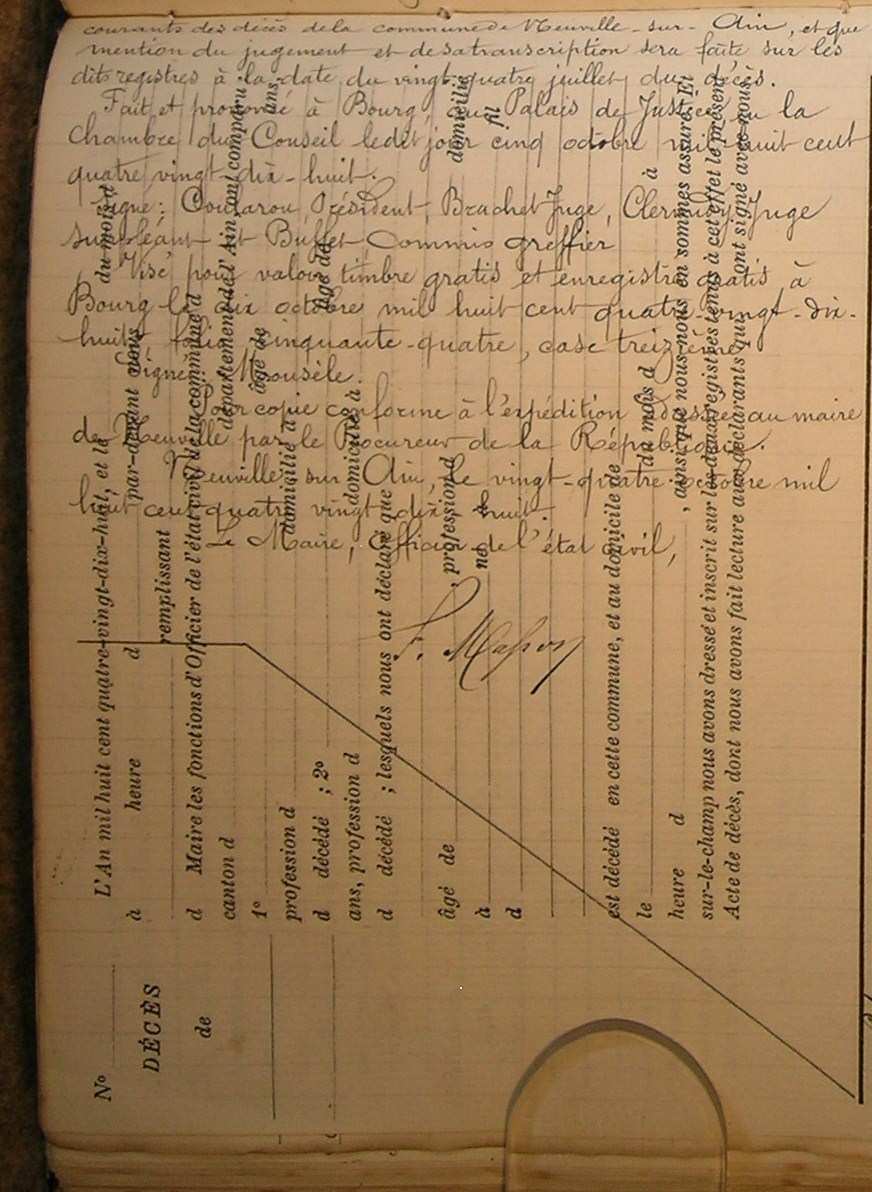 courants des décès de la commune de Neuville-sur-Ain, et que
mention du jugement et de sa transcription sera faite sur les
dits registres à la date du vingt-quatre juillet du décès.
Fait et prononcé à Bourg, au Palais de Justice en la
Chambre du Conseil ledit jour cinq octobre mil huit cent
quatre vingt-dix-huit.
Signé: Président, Brachet Juge, Juge
suppléant et Buffet Commis greffier
Visé pour valoir timbre gratis et enregistré gratis à
Bourg le dix octobre mil huit cent quatre-vingt-dix-
huit, folio cinquante-quatre, case treizième.
Signé:
Pour copie conforme à l'expédition adressée au maire
de Neuville par le Procureur de la République.
Neuville sur Ain, le vingt-quatre octobre mil
huit cent quatre vingt dix-huit.
Le Maire, Officier de l'état civil,
N°
DÉCÈS
de
L'An mil huit cent quatre-vingt-dix-huit, et le du mois d
à heure d par-devant nous
remplissant
d Maire les fonctions d'Officier de l'état civil de la commune d
canton d département de l'Ain, ont comparu
1° âgé de ans,
profession d domicilié à
d décédé ; 2° âgé de
ans, profession d domicilié à
d décédé ; lesquels nous ont déclaré que
âgé de , profession d domicilié
à né à fil
d
est décédé en cette commune, et au domicile de
le du mois d à
heure d , ainsi que nous nous en sommes assuré. Et
sur-le-champ nous avons dressé et inscrit sur les deux registres tenus à cet effet le présent
Acte de décès, dont nous avons fait lecture aux déclarants qui ont signé avec nous.